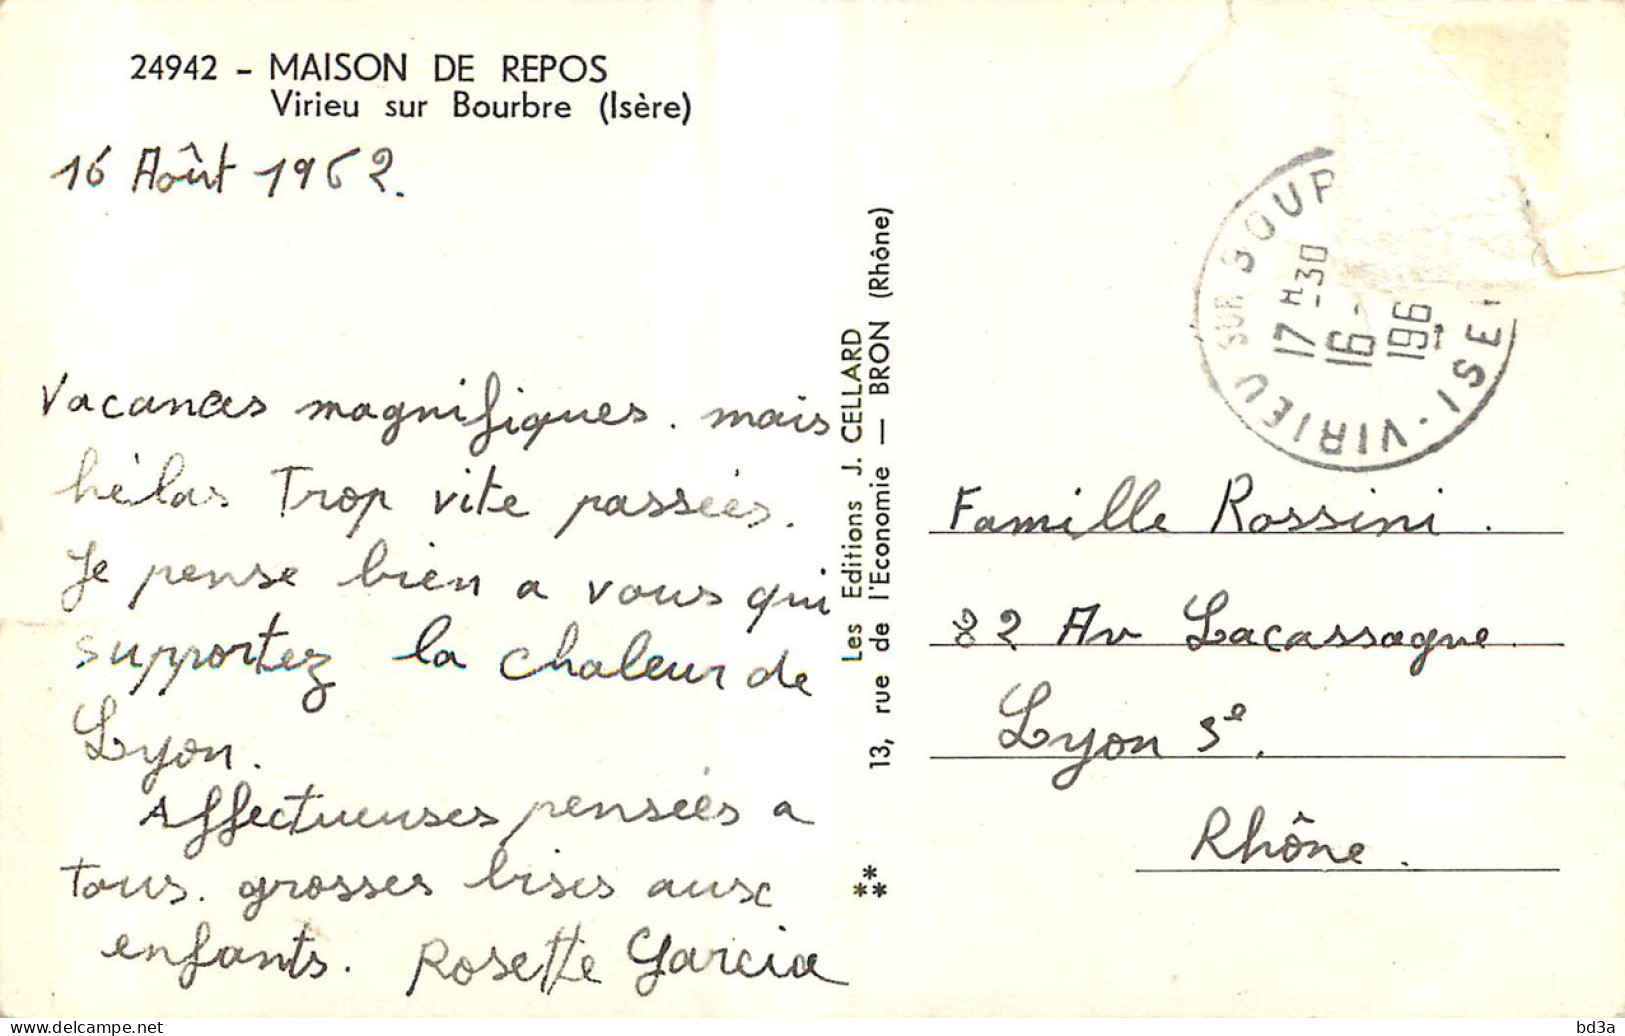 24942 - MAISON DE REPOS
Virieu sur Bourbre (Isère)
16 Août 1962.
Vacances magnifiques. mais
hélas Trop vite passées.
Je pense bien a vous qui
supportez la chaleur de
Lyon.
Affectueuses pensées a
tous. grosses bises aux
enfants. Rosette Garcia
Les Editions J. CELLARD
13, rue de l'Economie — BRON (Rhône)
***
VIRIEU SUR BOUR
ISE
17 H-30
16-
196
Famille Rossini.
82 Av Lacassagne.
Lyon 3e.
Rhône.
delcampe.net
bd3a